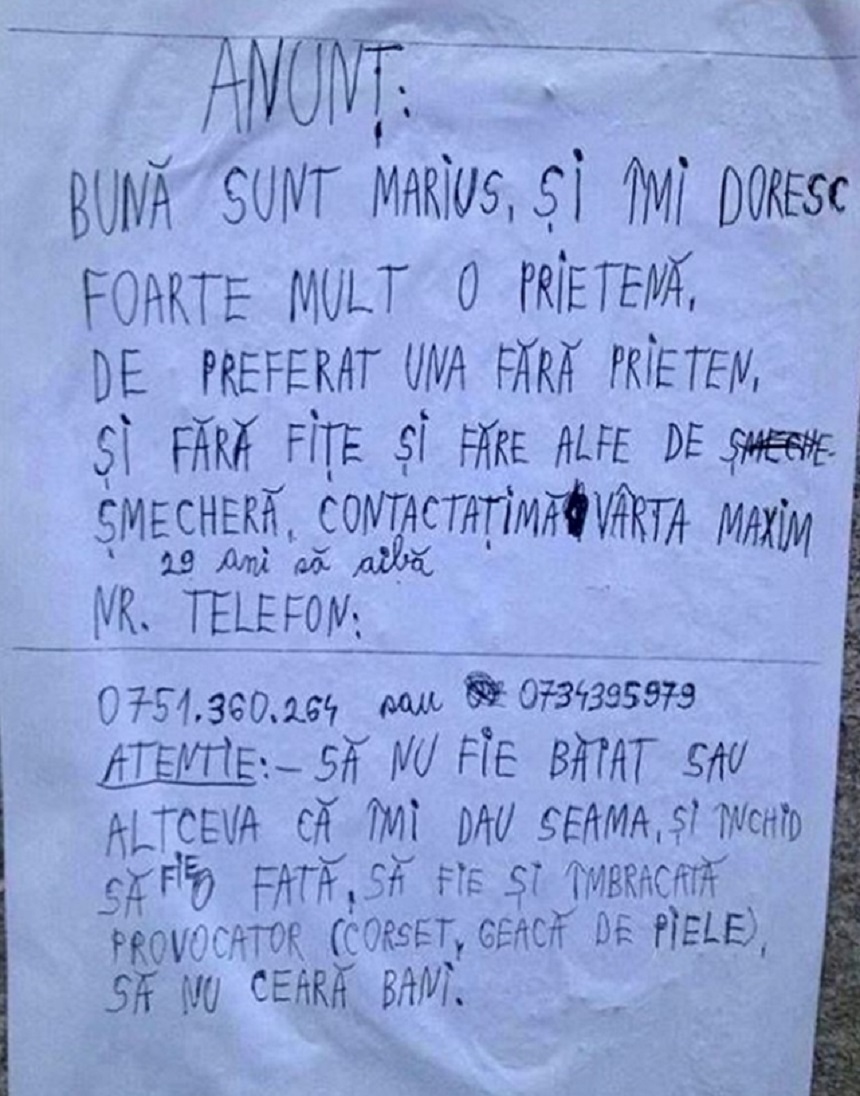 ANUNȚ:
BUNĂ SUNT MARIUS, ȘI ÎMI DORESC
FOARTE MULT O PRIETENĂ,
DE PREFERAT UNA FĂRĂ PRIETEN,
ȘI FĂRĂ FIȚE ȘI FĂRE ALFE DE ȘMECHE-
ȘMECHERĂ, CONTACTAȚIMĂ VÂRTA MAXIM
29 ani să aibă
NR. TELEFON:
0751.360.264 sau 0734395979
ATENTIE:- SĂ NU FIE BĂTAT SAU
ALTCEVA CĂ ÎMI DAU SEAMA, ȘI ÎNCHID
SĂ FIE O FATĂ, SĂ FIE ȘI ÎMBRACATĂ
PROVOCATOR (CORSET, GEACĂ DE PIELE),
SĂ NU CEARĂ BANI.